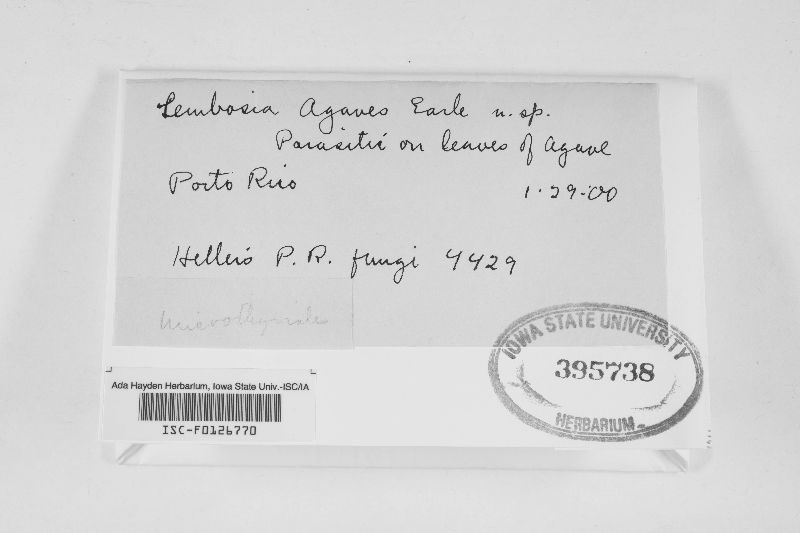 Lembosia Agaves Earle n. sp.
Parasitic on leaves of Agave
Porto Rico 1-29-00
Heller's P. R. fungi 4429
Microthyriales
IOWA STATE UNIVERSITY
395738
HERBARIUM
Ada Hayden Herbarium, Iowa State Univ.-ISC/IA
ISC-F0126770